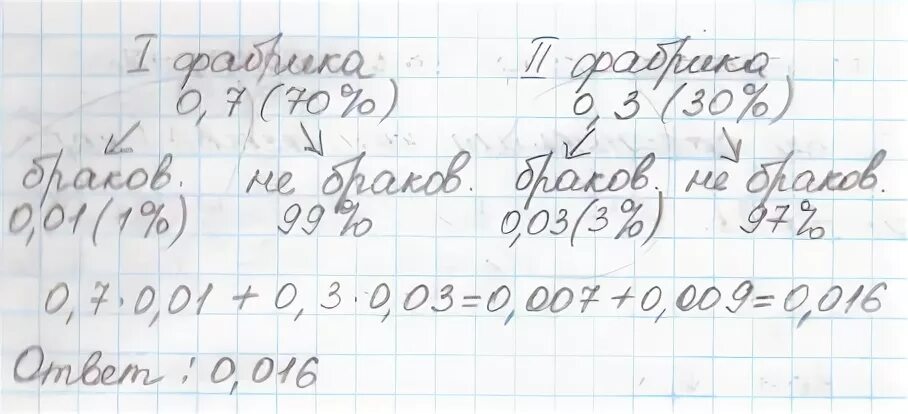 I фабрика II фабрика
0,7 (70%) 0,3 (30%)
браков. не браков. браков. не браков.
0,01 (1%) 99% 0,03 (3%) 97%
0,7·0,01 + 0,3·0,03=0,007+0,009=0,016
Ответ: 0,016